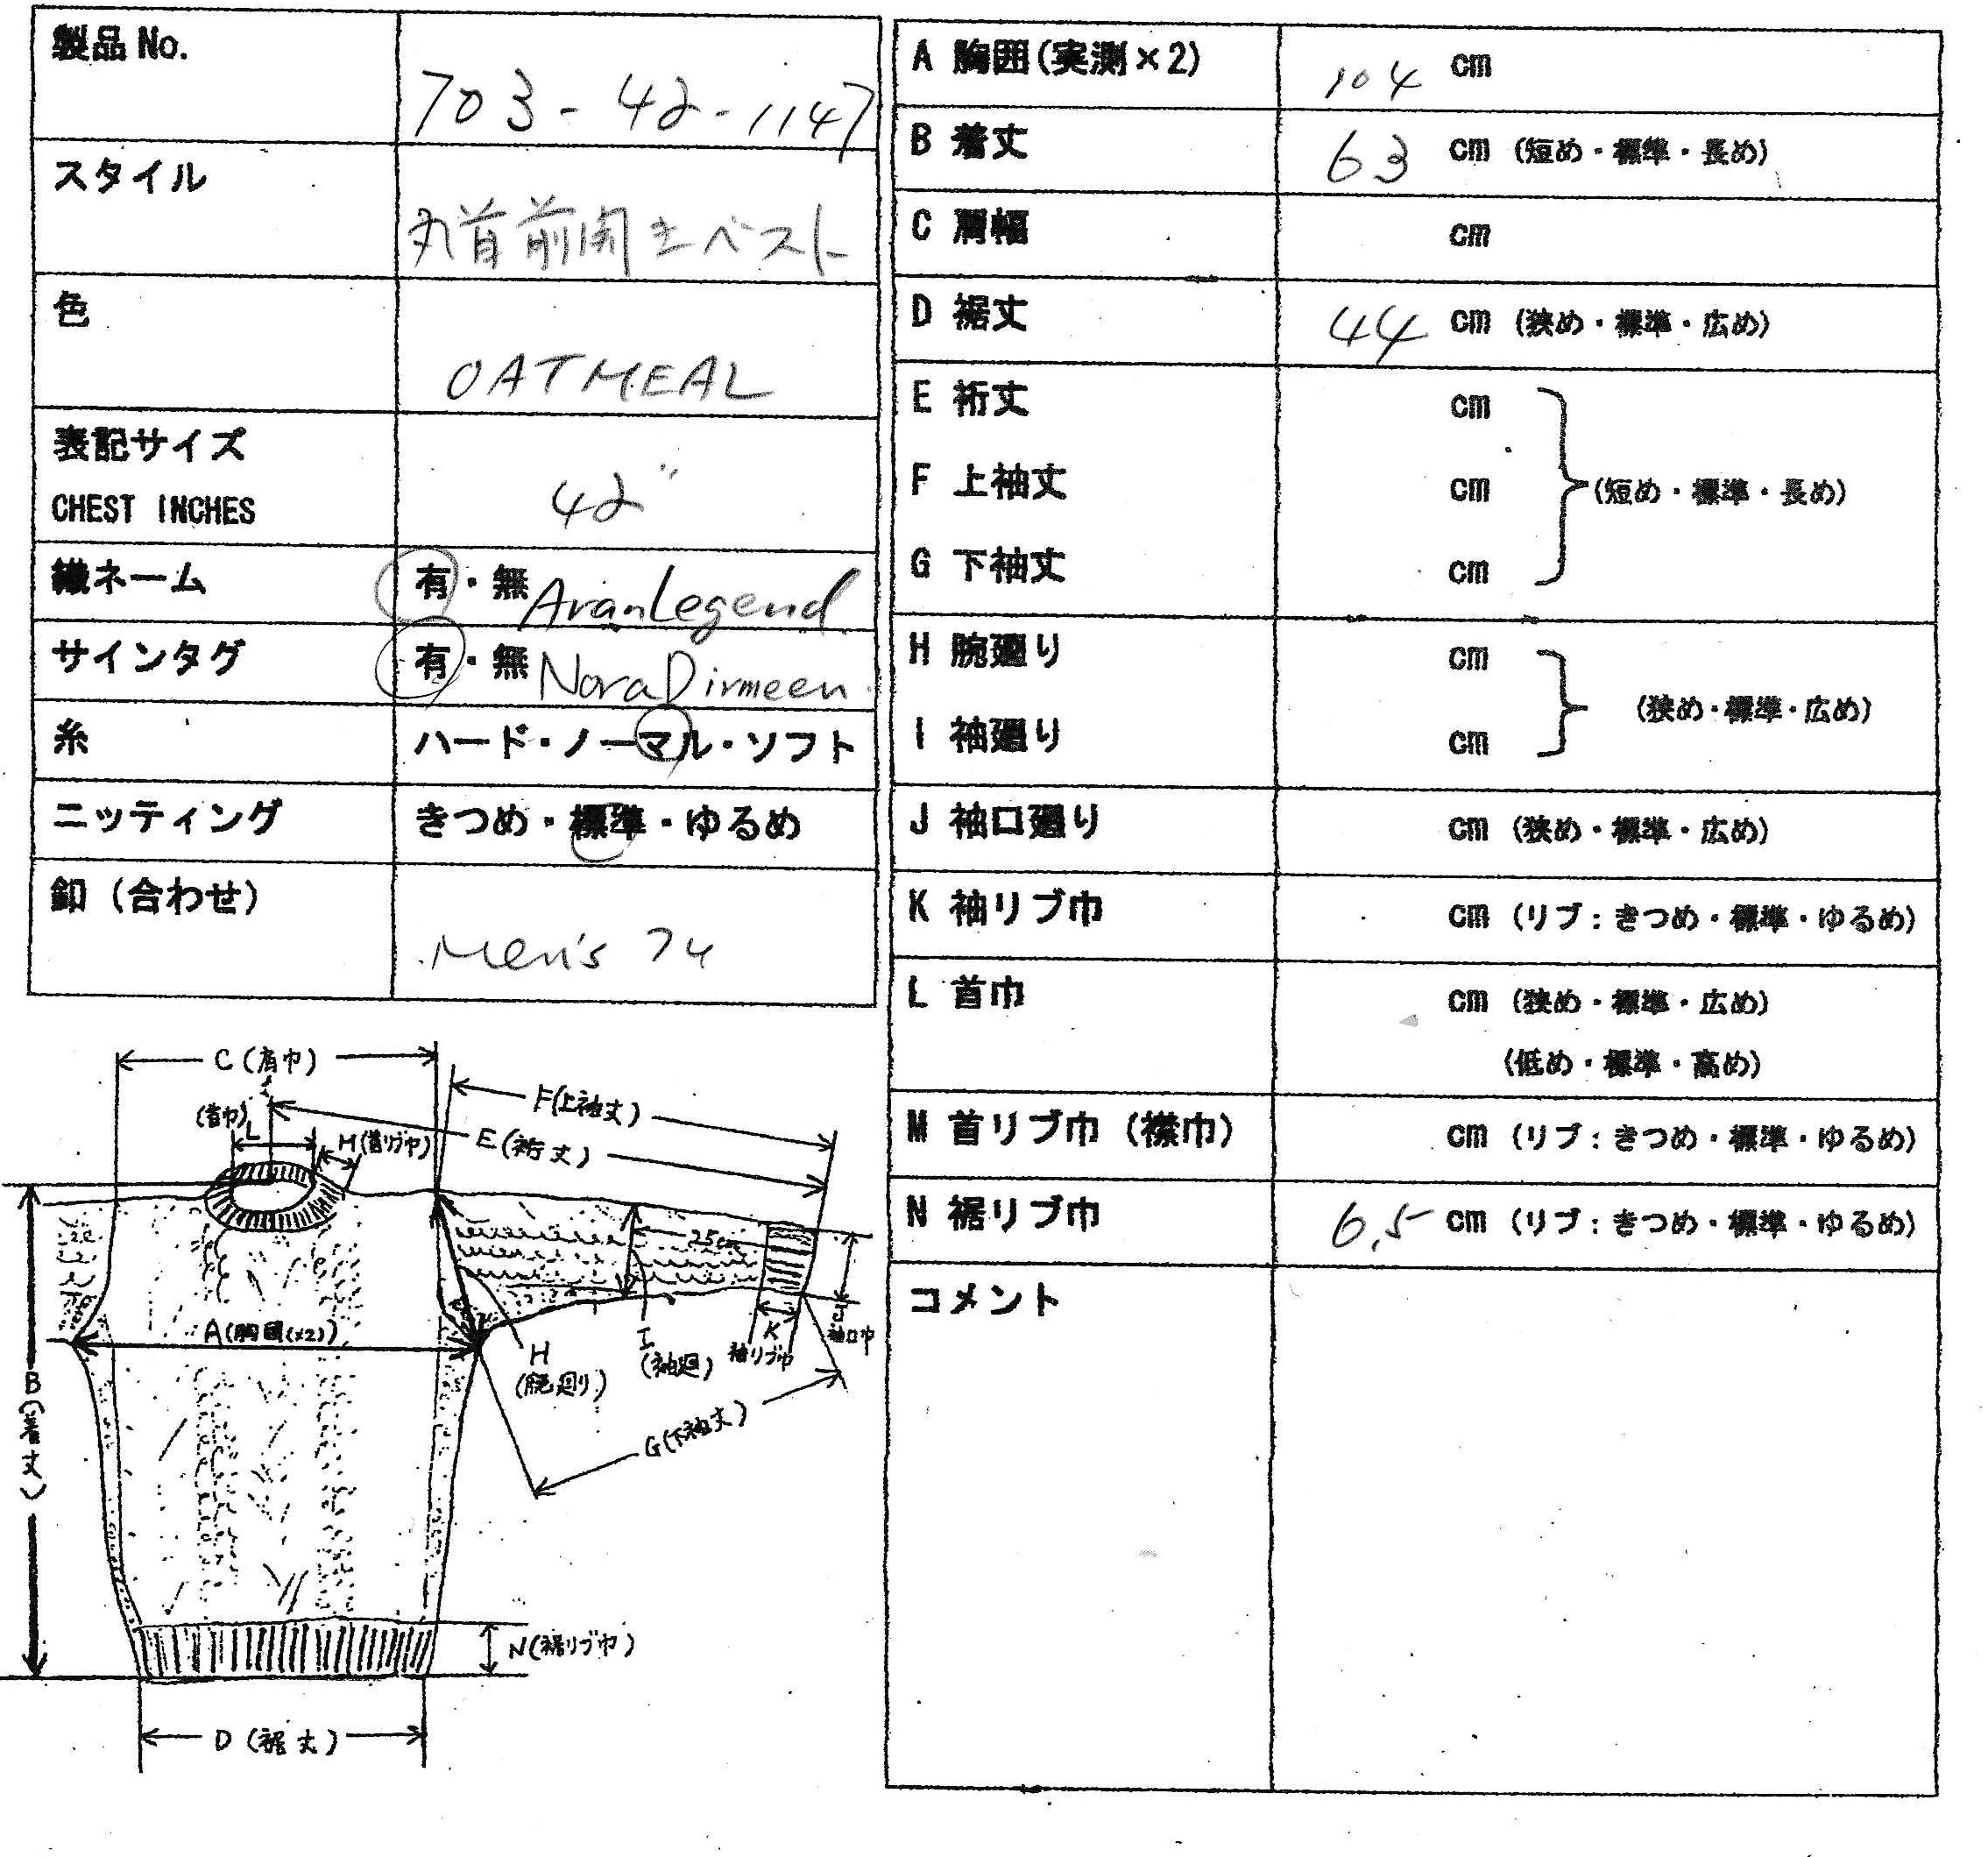 製品 No.
703-42-1147
スタイル
丸首前開きベスト
色
OATMEAL
表記サイズ
CHEST INCHES
42"
織ネーム
有・無 AranLegend
サインタグ
有・無 Nora Dirmeen
糸
ハード・ノーマル・ソフト
ニッティング
きつめ・標準・ゆるめ
釦（合わせ）
Men's
A 胸囲(実測×2) 104 cm
B 着丈 63 cm (短め・標準・長め)
C 肩幅 cm
D 裾丈 44 cm (狭め・標準・広め)
E 裄丈 cm
F 上袖丈 cm (短め・標準・長め)
G 下袖丈 cm
H 腕廻り cm
(狭め・標準・広め)
I 袖廻り cm
J 袖口廻り cm (狭め・標準・広め)
K 袖リブ巾 cm (リブ：きつめ・標準・ゆるめ)
L 首巾 cm (狭め・標準・広め)
(低め・標準・高め)
M 首リブ巾（襟巾） cm (リブ：きつめ・標準・ゆるめ)
N 裾リブ巾 6.5 cm (リブ：きつめ・標準・ゆるめ)
コメント
C(肩巾)
F(上袖丈)
(首巾)
L
M(首リブ巾)
E(裄丈)
25cm
A(胸囲(×2))
H
(腕廻り)
I
(袖廻)
K
袖リブ巾
J
袖口巾
B(着丈)
G(下袖丈)
N(裾リブ巾)
D(裾丈)